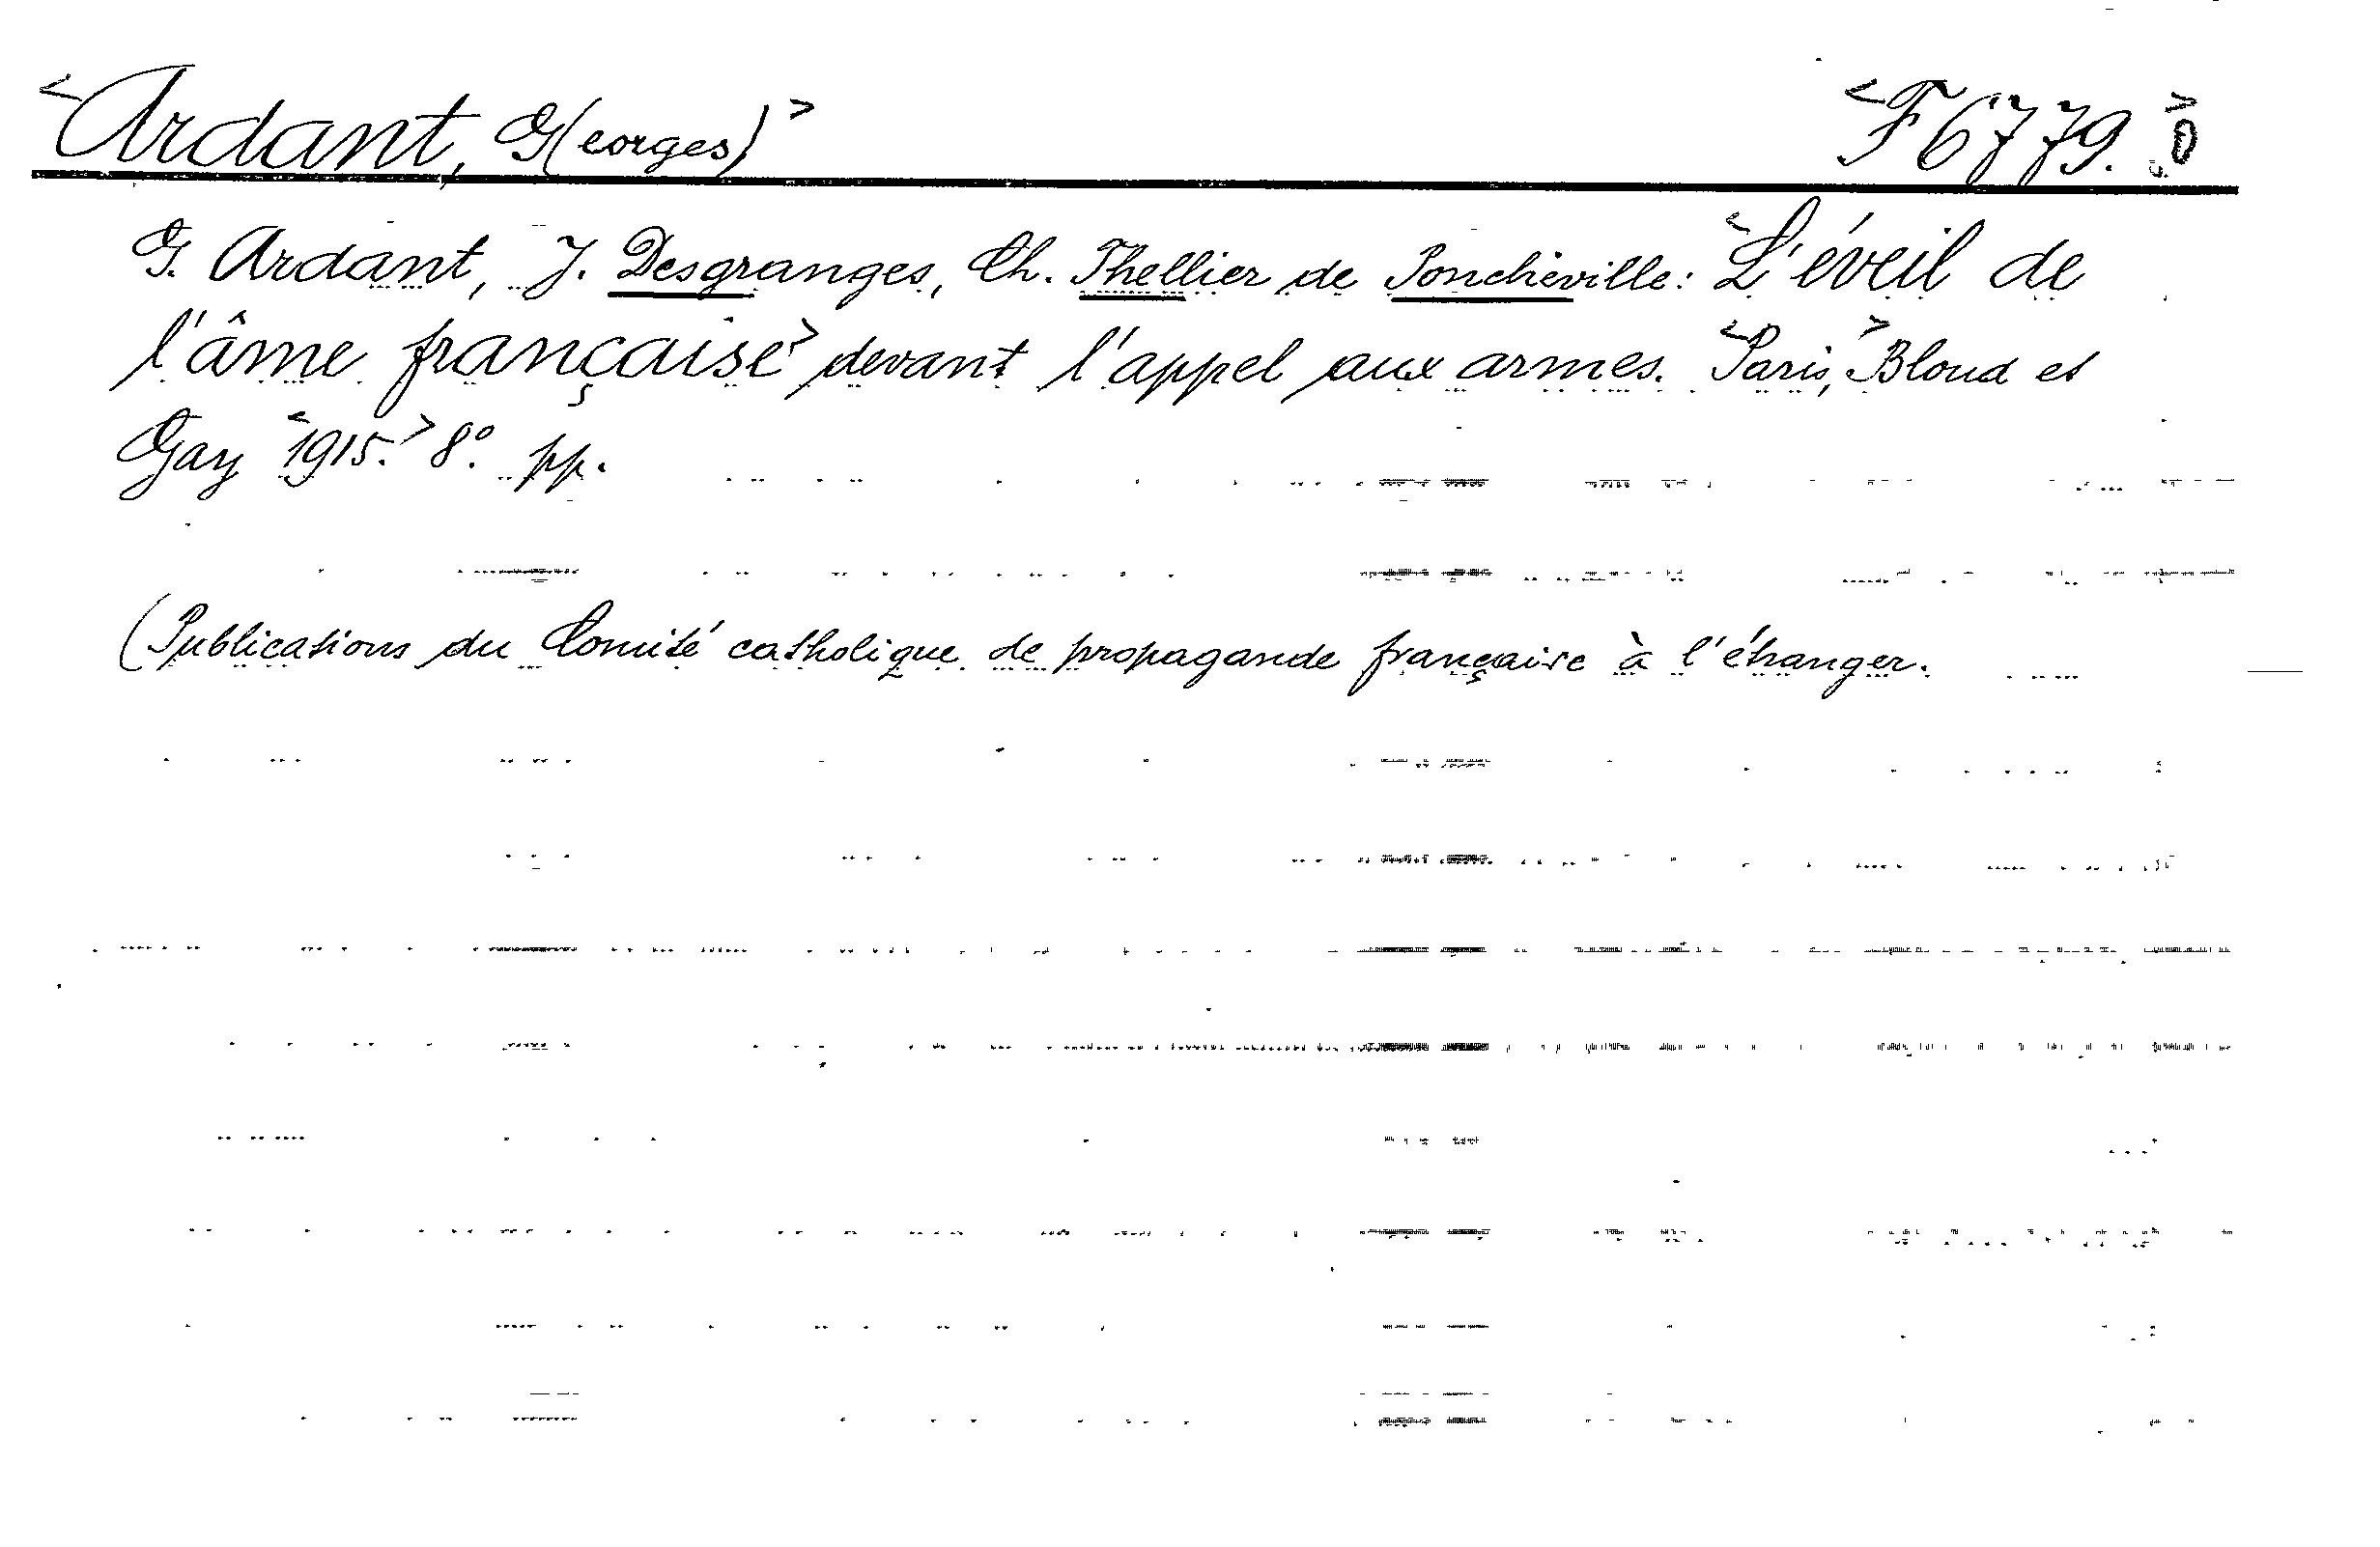 <Ardant, G(eorges)> <F6779.> 8
G. Ardant, J. Desgranges, Ch. Thellier de Poncheville: <L'éveil de
l'âme française> devant l'appel aux armes. <Paris,> Bloud et
Gay <1915.> 8°. pp.
(Publications du Comité catholique de propagande française à l'étranger.